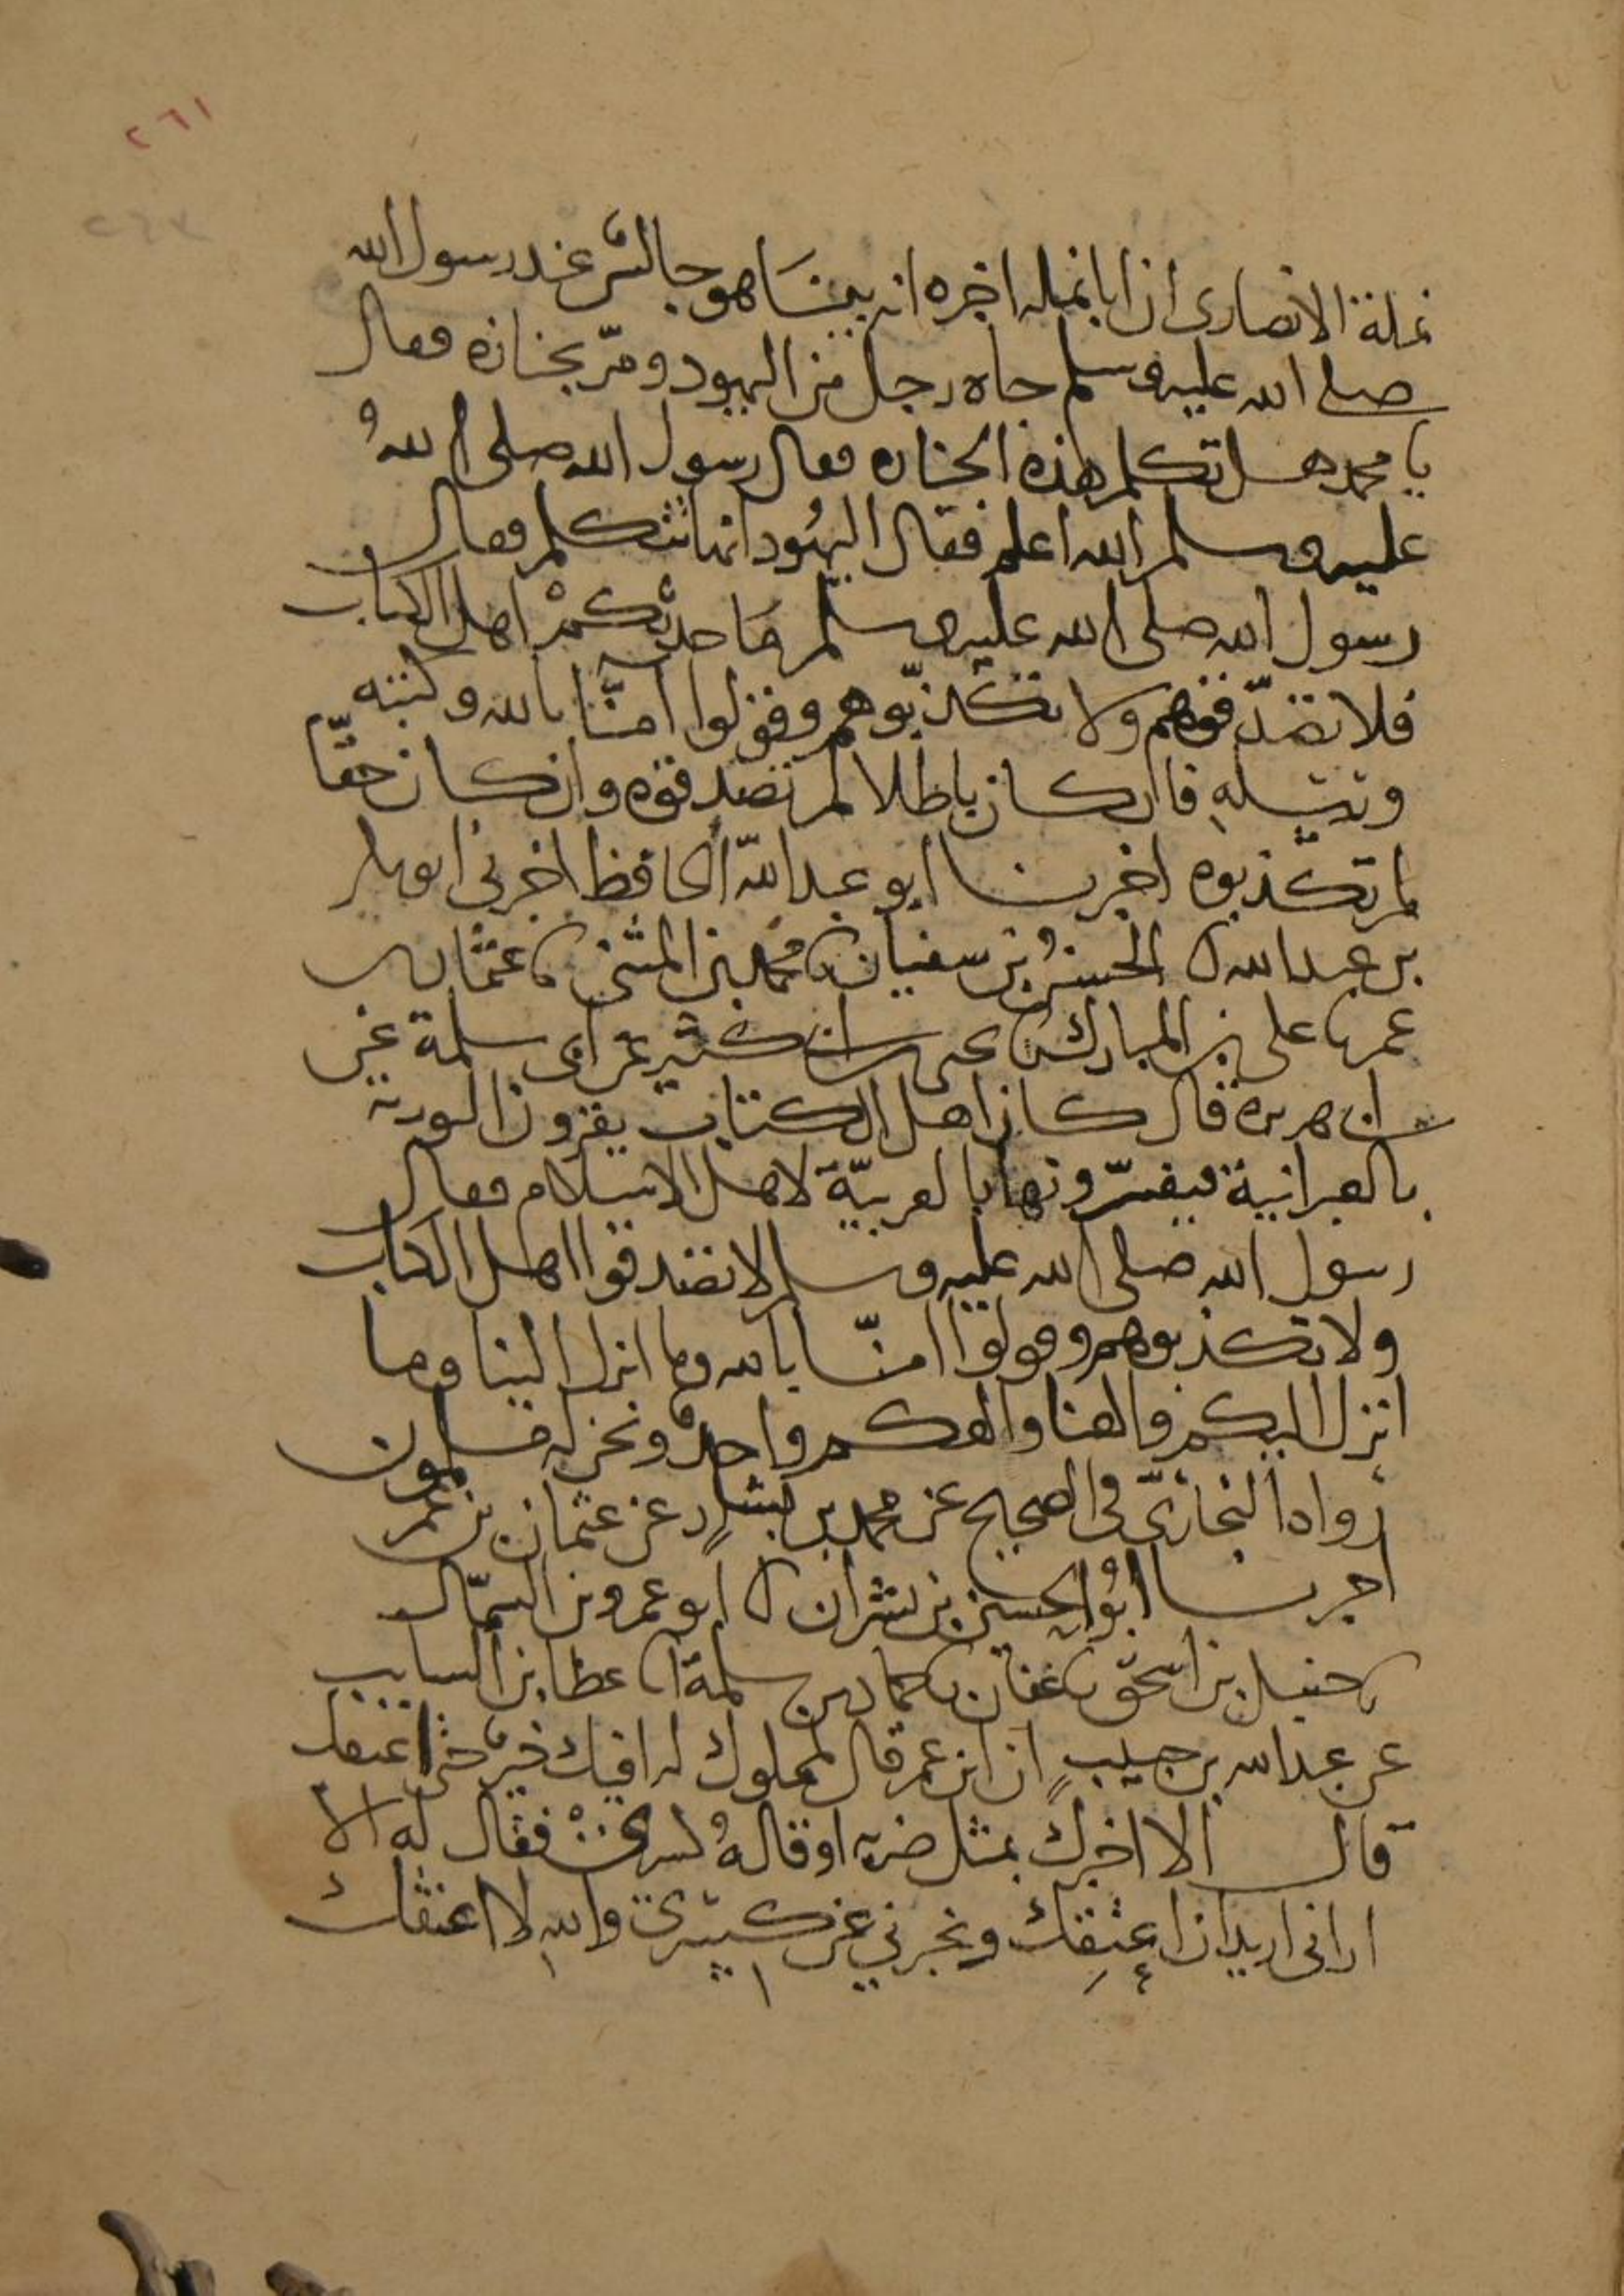 ٢٦١
٢٦٣
نملة الانصارى ان ابا نمله اخبره انه بينَا هو جالسٌ عند رسول الله
صلى الله عليه وسلم جاه رجل من اليهود ومرّ بجنازه فقال
يا محمد هل تكلم هذه الجنازه فقال رسول الله صلى اللهُ
عليه وسلم الله اعلم فقال اليهُود انها تتكلم فقال
رسول الله صلى الله عليه وسلم مَا حدثكمْ اهل الكتاب
فلا تصدّقوهم ولا تكذبّوهم وقولوا آمنَّا بالله وكتبه
ورسله فان كان باطلا لم تصدقوه وان كان حقّا
لم تكذبوه اخبرنا ابو عبد الله الحافظ اخبرني ابو بكر
بن عبد الله ا الحسنُ بن سفيان ثنا محمد بن المثنى ثنا عثمان بن
عمر ثنا على بن المبارك ثنا يحيى بن ابى كثير عن ابى سلمة عن
ابى هريره قال كان اهل الكتاب يقرون التوريه
بالعبرانية فيفسّرونها بالعربيّة لاهل الاسلام فقال
رسول الله صلى الله عليه وسلم لا تصدقوا اهل الكتاب
ولا تكذبوهم وقولوا امنّا بالله وما انزل الينا وما
انزل اليكم والهنا والهكم واحدٌ ونحن له مسلمون
رواه البخاريّ في الصحيح عن محمد بن بشارٍ عن عثمان بن عمر
اخبرنا ابُو الحسين بن بشران ا ابو عمرو بن السمّاك
ثنا حنبل بن اسحق ثنا عفان ثنا حماد بن سلمة انا عطا بن السايب
عن عبد الله بن حبيبٍ ان ابن عمر قال لمملوك له افيك خيرٌ حتى اعتقك
قال الا اخبرك بمثل ضربه او قالهُ كسرى فقال له الا
ارانى اريد ان اعتقك وتخبرني عن كسرى والله لا اعتقك